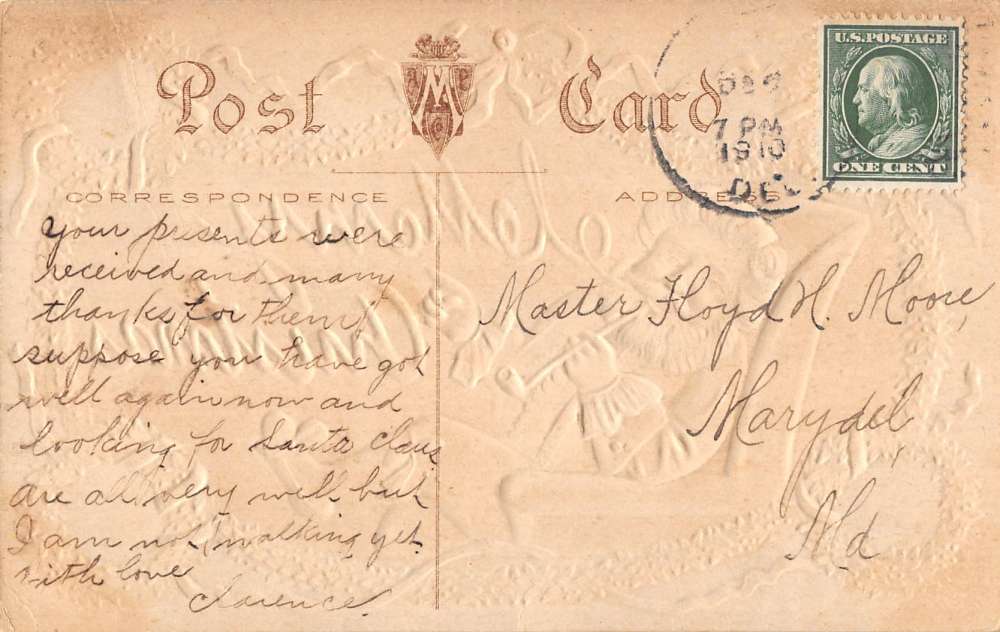 Post Card
M
U.S. POSTAGE
ONE CENT
7 PM
1910
DEL
CORRESPONDENCE
ADDRESS
your presents were
received and many
thanks for them I
suppose you have got
well again now and
looking for Santa Claus
are all very well but
I am not walking yet
with love
Clarence
Master Floyd H. Moore,
Marydel
Md